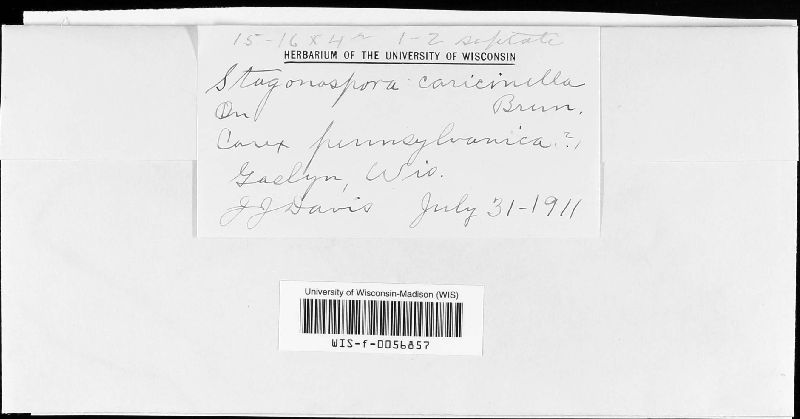 15-16 x 4 1-2 septate
HERBARIUM OF THE UNIVERSITY OF WISCONSIN
Stagonospora caricinella
On Brun.
Carex pennsylvanica?,
Gaslyn, Wis.
JJ Davis July 31-1911
University of Wisconsin-Madison (WIS)
WIS-f-0056857